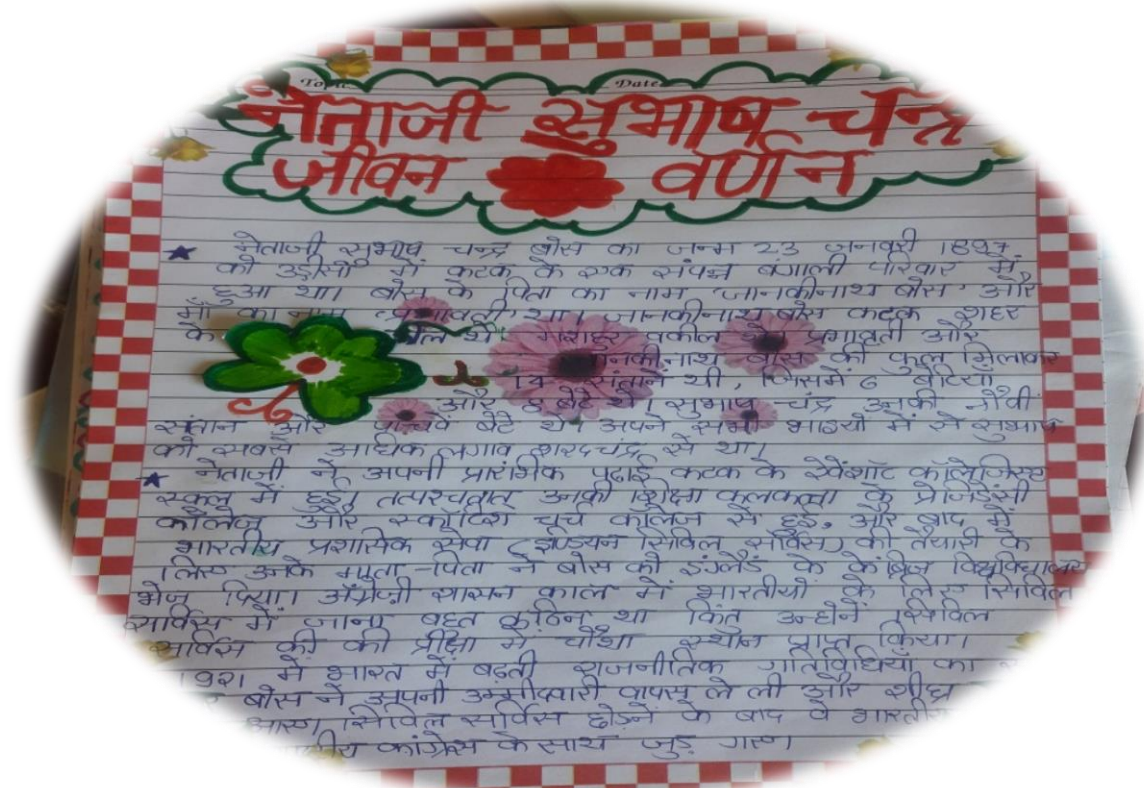 Topic Date
नेताजी सुभाष चन्द्र
जीवन वर्णन
★ नेताजी सुभाष चन्द्र बोस का जन्म 23 जनवरी 1897
को उड़ीसा में कटक के एक संपन्न बंगाली परिवार में
हुआ था। बोस के पिता का नाम 'जानकीनाथ बोस' और
माँ का नाम था। जानकीनाथ बोस कटक शहर
के मशहूर वकील थे प्रभावती और
जानकीनाथ बोस की कुल मिलाकर
14 संताने थी, जिसमें 6 बेटियाँ
और 8 बेटे थे। सुभाष चंद्र उनकी नौवीं
संतान और पाँचवें बेटे थे। अपने सभी भाइयों में से सुभाष
को सबसे अधिक लगाव शरदचंद्र से था।
★ नेताजी ने अपनी प्रारंभिक पढाई कटक के रेवेंशॉव कॉलेजिएट
स्कूल में हुई। तत्पश्चात् उनकी शिक्षा कलकत्ता के प्रेजिडेंसी
कॉलेज और स्कॉटिश चर्च कॉलेज से हुई, और बाद में
भारतीय प्रशासिक सेवा (इण्डियन सिविल सर्विस) की तैयारी के
लिए उनके माता-पिता ने बोस को इंग्लैंड के केंब्रिज विश्वविद्यालय
भेज दिया। अँग्रेज़ी शासन काल में भारतीयों के लिए सिविल
सर्विस में जाना बहुत कठिन था किंतु उन्होनें सिविल
सर्विस की की प्रीक्षा में चौथा स्थान प्राप्त किया।
1921 में भारत में बढ़ती राजनीतिक गतिविधियों का
बोस ने अपनी उम्मीदवारी वापस ले ली और शीघ्र
आए। सिविल सर्विस छोड़ने के बाद वे भारतीय
कांग्रेस के साथ जुड़ गए।